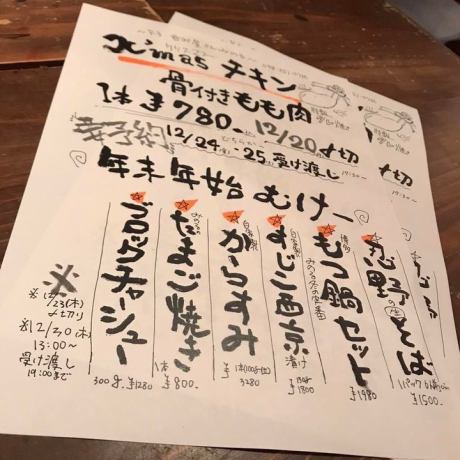 X'mas チキン
骨付きもも肉
1本 ¥780 12/20〆切
要予約
12/24
25 受け渡し
年末年始 むけー
忍野の生そば
¥1500-
もつ鍋セット
¥1980
自家製
すじこ西京漬け
130g
¥1800
自家製
からすみ
3280
たまご焼き
1本
¥800-
ブロックチャーシュー
300g ¥1280
※
※12/23(木)
〆切り
※12/30(木)
13:00〜
受け渡し
19:00まで
〆切